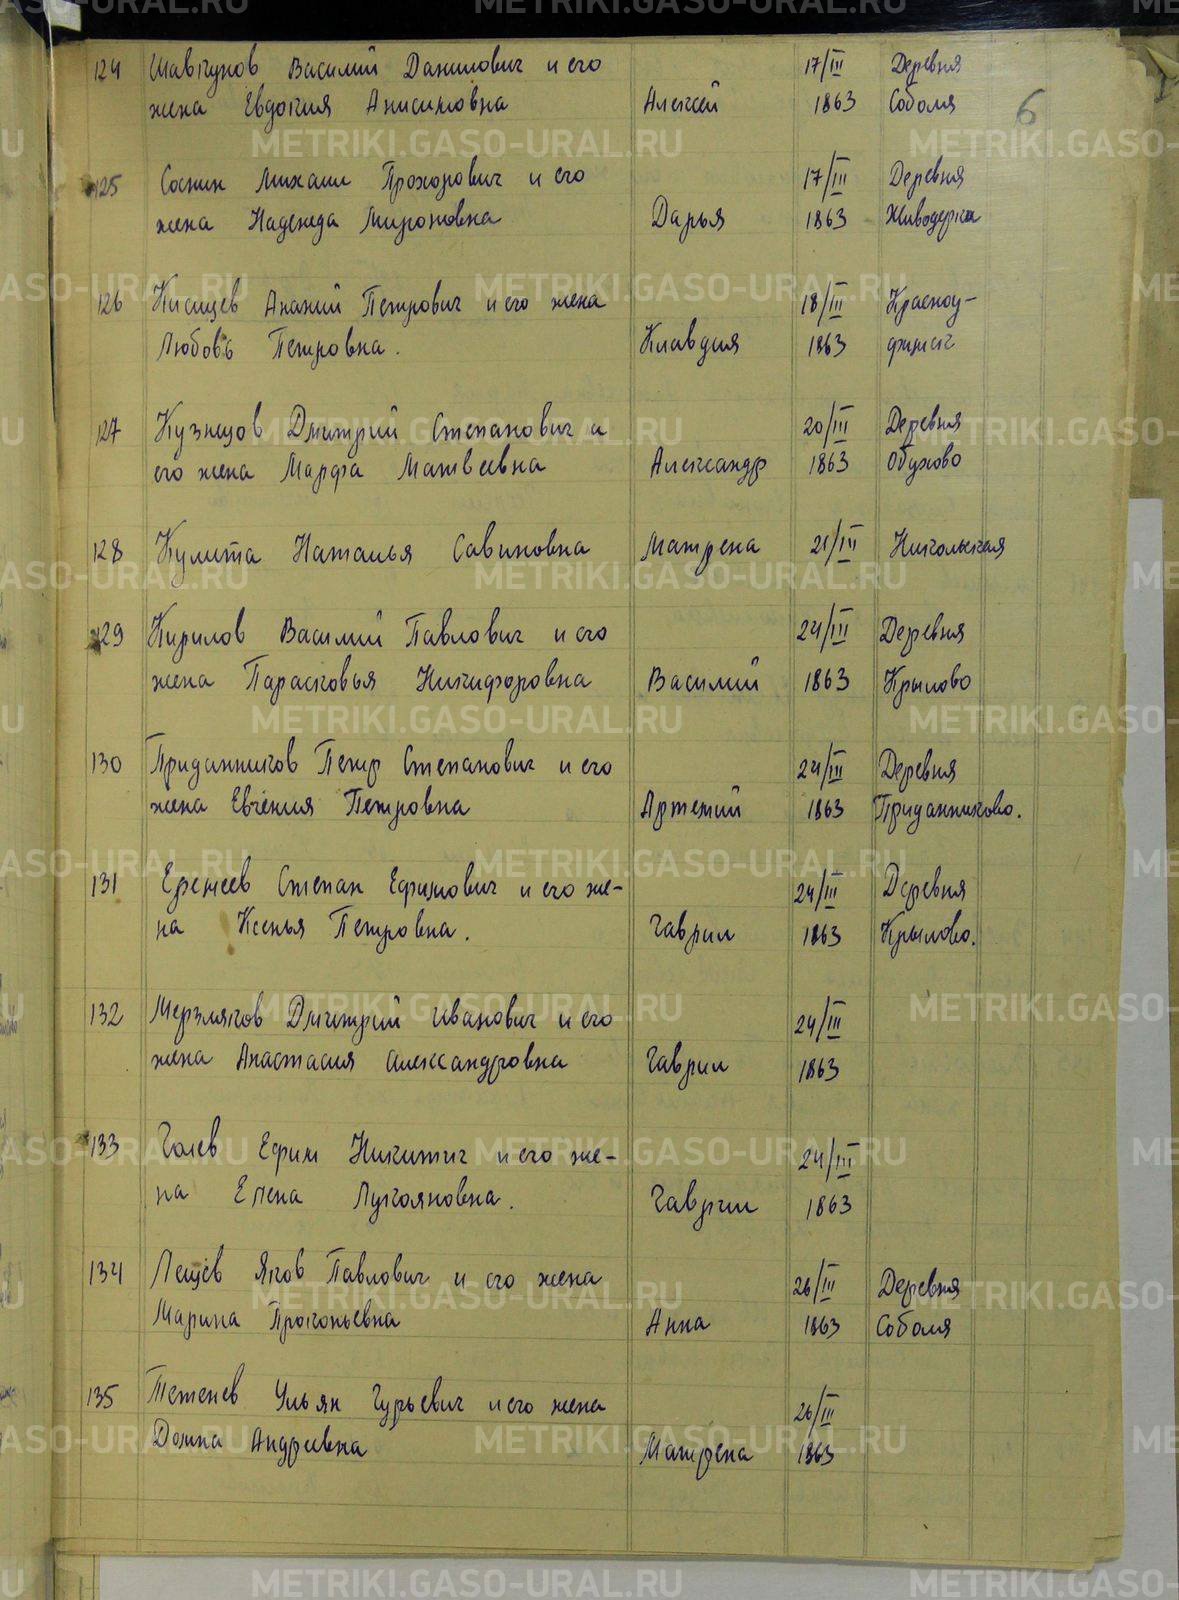 124 Шавкунов Василий Данилович и его 17/III Деревня
жена Евдокия Анисимовна Алексей 1863 Соболя 6
125 Соснин Михаил Прохорович и его 17/III Деревня
жена Надежда Мироновна Дарья 1863 Живодерка
126 Кисщев Ананий Петрович и его жена 18/III Красноу-
Любовь Петровна. Клавдия 1863 фимск
127 Кузнецов Дмитрий Степанович и 20/III Деревня
его жена Марфа Матвеевна Александр 1863 Обухово
128 Наталья Савиновна Матрена 21/III Никольская
129 Кирилов Василий Павлович и его 24/III Деревня
жена Парасковья Никифоровна Василий 1863 Крылово
130 Приданников Петр Степанович и его 24/III Деревня
жена Евгения Петровна Артемий 1863 Приданниково.
131 Ержеев Степан Ефимович и его же- 24/III Деревня
на Ксенья Петровна. Гаврил 1863 Крылово.
132 Мерзляков Дмитрий Иванович и его 24/III
жена Анастасия Александровна Гаврил 1863
133 Голев Ефим Никитич и его же- 24/III
на Елена Лукояновна. Гаврил 1863
134 Лещев Яков Павлович и его жена 26/III Деревня
Марина Прокопьевна Анна 1863 Соболя
135 Тетенев Ульян Гурьевич и его жена 26/III
Домна Андревна Матрена 1863
METRIKI.GASO-URAL.RU